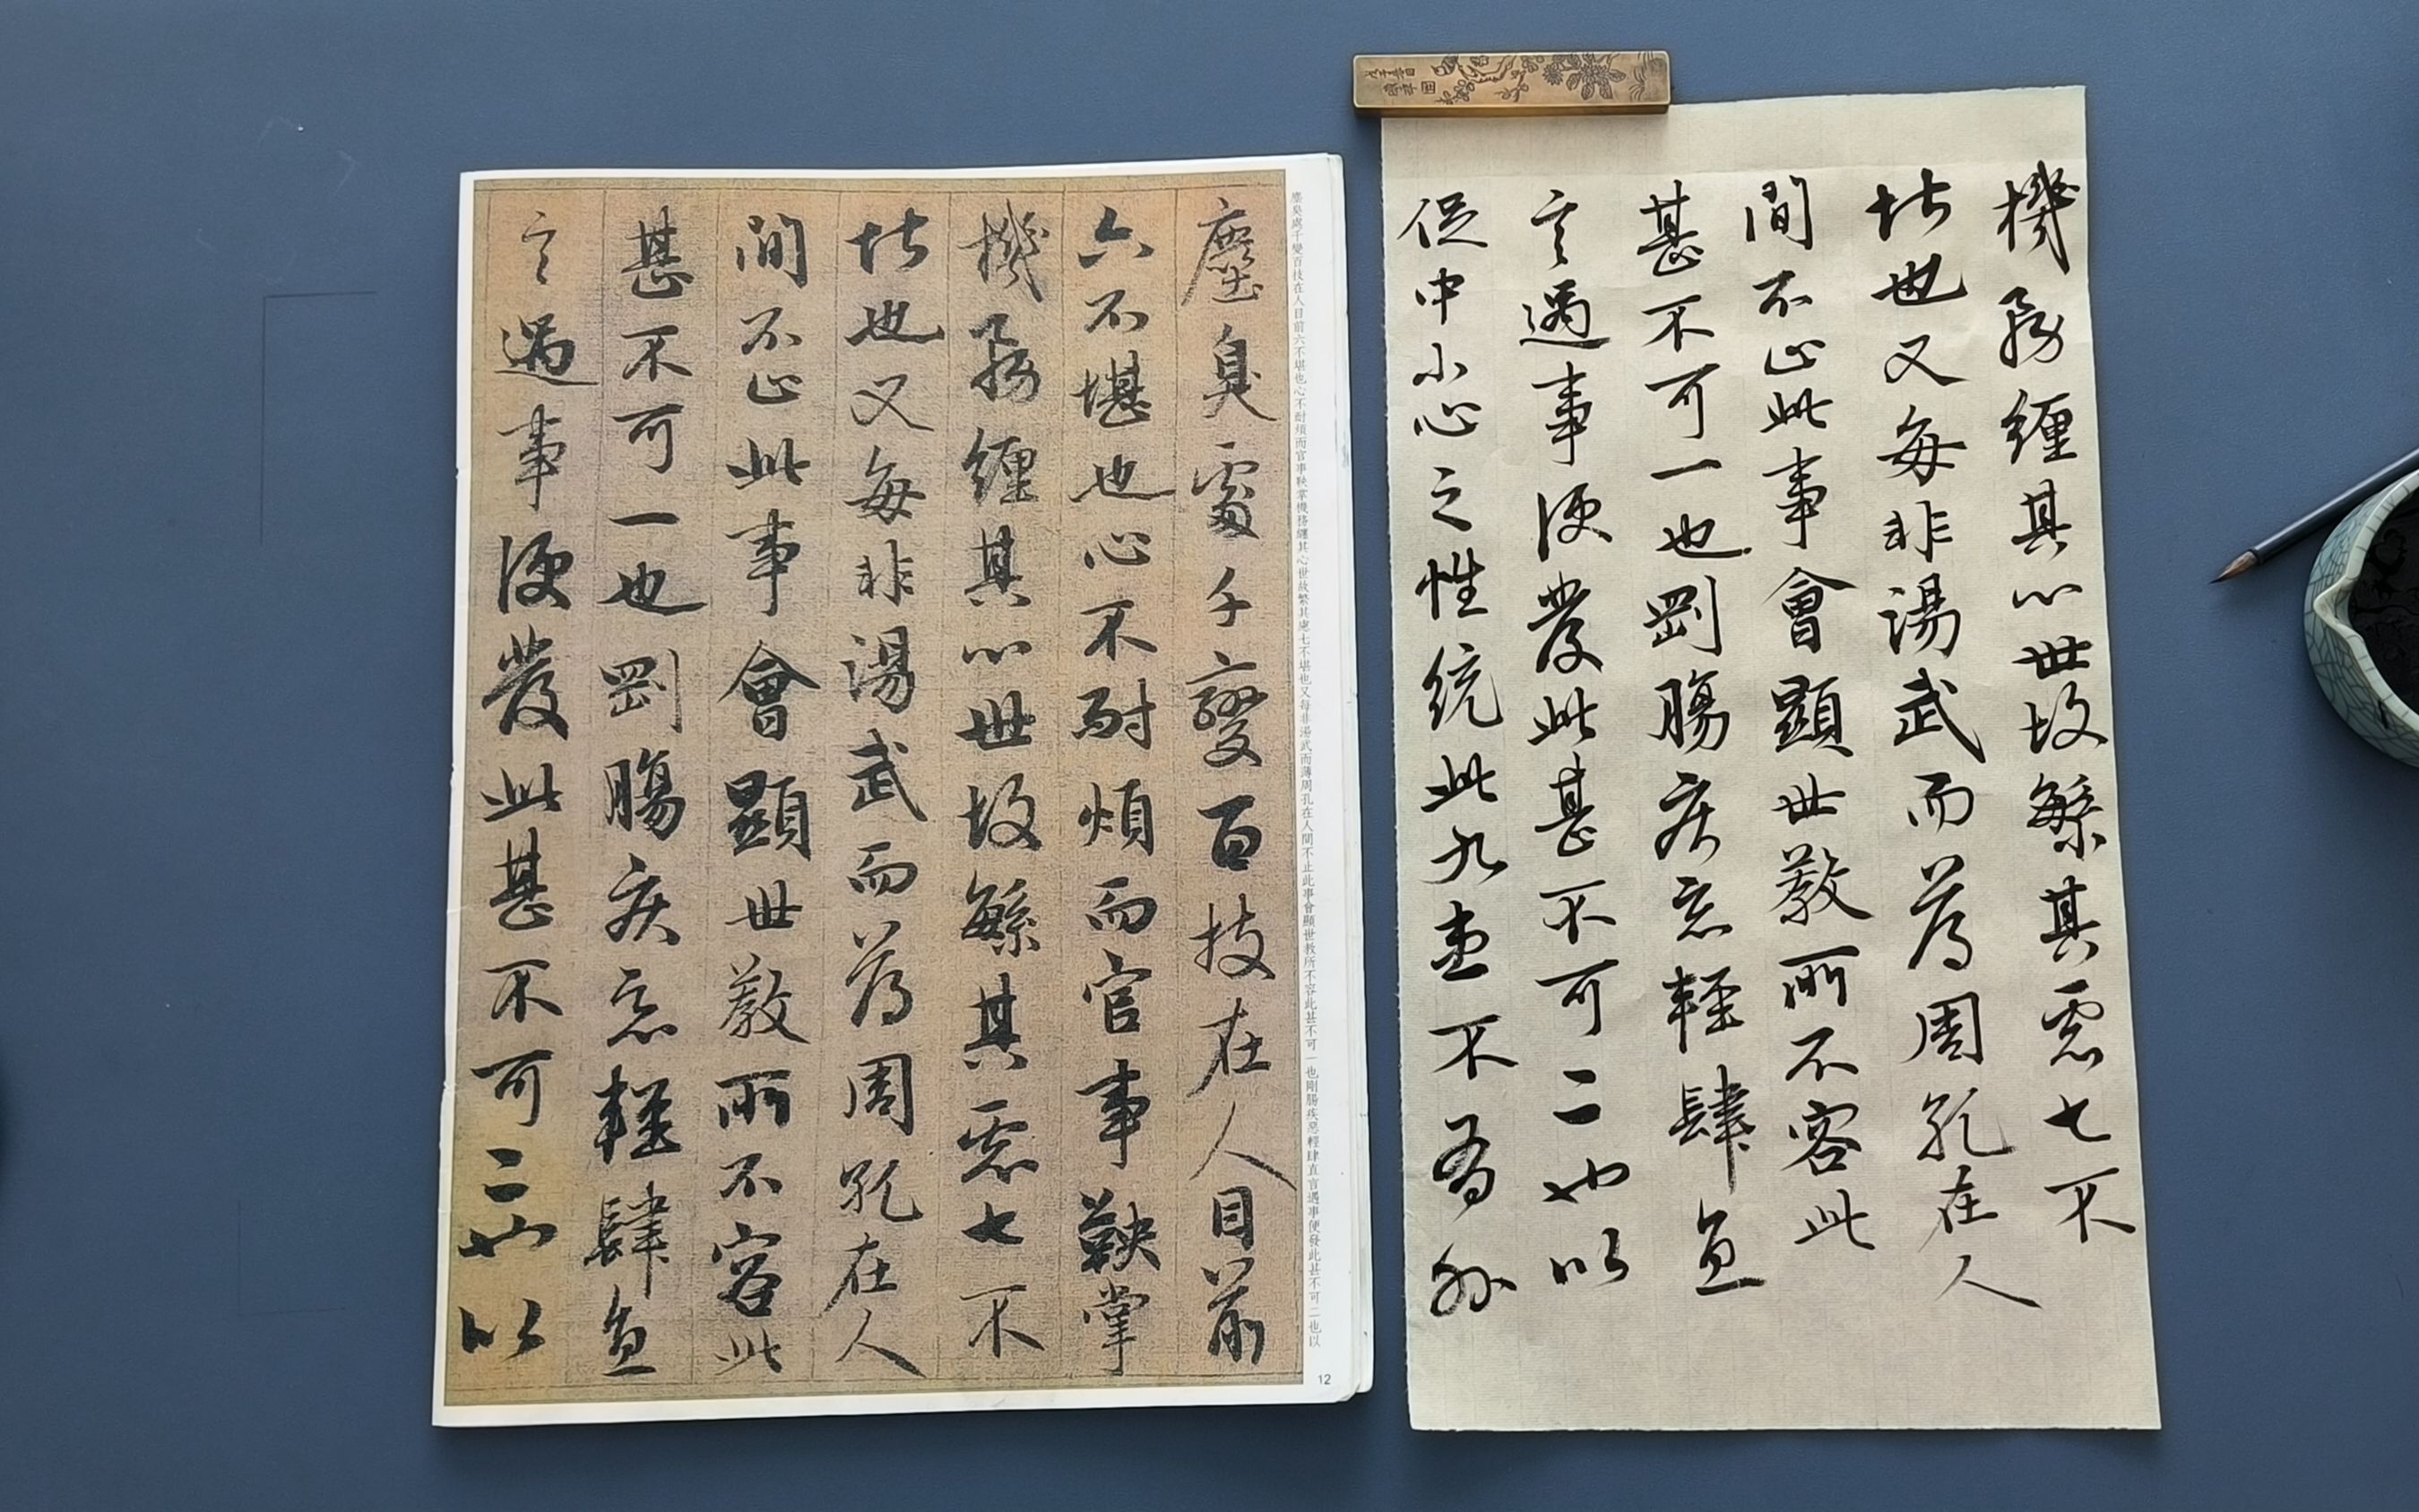 塵臭處千變百技在人目前六不堪也心不耐煩而官事鞅掌機務纏其心世故繁其慮七不堪也又每非湯武而薄周孔在人間不止此事會顯世教所不容此甚不可一也剛腸疾惡輕肆直言遇事便發此甚不可二也以
塵臭處千變百技在人目前
六不堪也心不耐煩而官事鞅掌
機務纏其心世故繁其慮七不
堪也又每非湯武而薄周孔在人
間不止此事會顯世教所不容此
甚不可一也剛腸疾惡輕肆直
言遇事便發此甚不可二也以
12
機務纏其心世故繁其慮七不
堪也又每非湯武而薄周孔在人
間不止此事會顯世教所不容此
甚不可一也剛腸疾惡輕肆直
言遇事便發此甚不可二也以
促中小心之性統此九患不有外